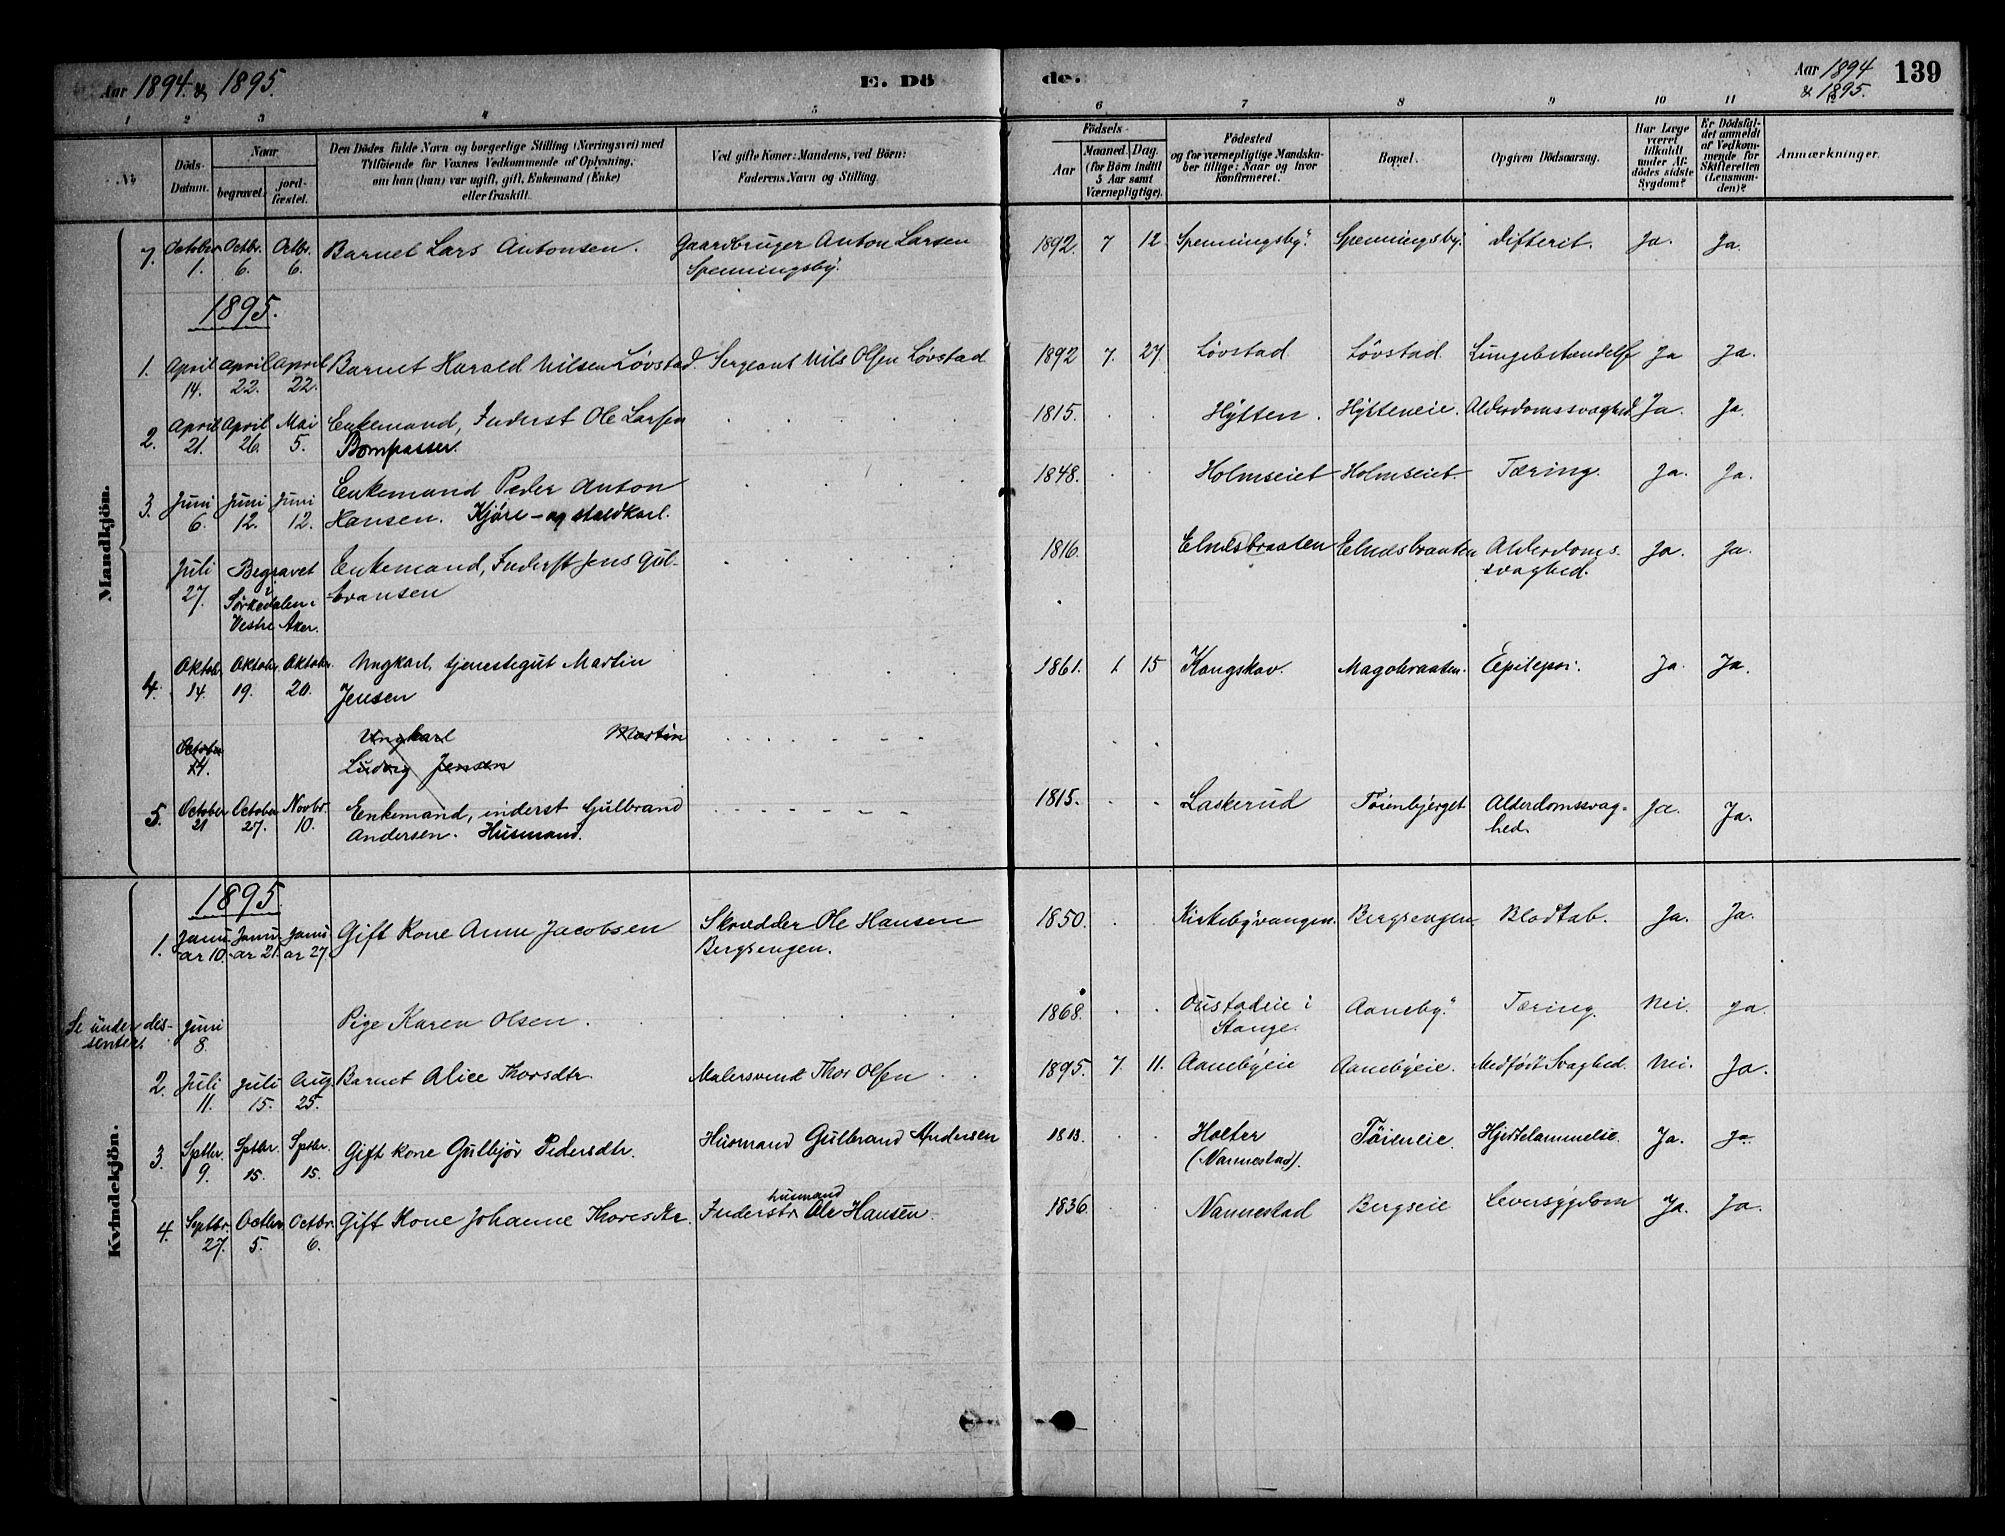 Aar 1894 & 1895. E. Dö de. Aar 1894 & 1895. 139
1 2 3 4 5 6 7 8 9 10 11
No
Döds-Datum.
Naar
begravet.
jord-fæstet.
Den Dödes fulde Navn og borgerlige Stilling (Næringsvei) med
Tilföiende for Voxnes Vedkommende af Oplysning,
om han (hun) var ugift, gift, Enkemand (Enke)
eller fraskilt.
Ved gifte Koner: Mandens, ved Börn:
Faderens Navn og Stilling.
Födsels-
Aar
Maaned. Dag.
(for Börn indtil
5 Aar samt
Værnepligtige).
Födested
og for værnepligtige Mandska-
ber tillige: Naar og hvor
konfirmeret.
Bopæl.
Opgiven Dödsaarsag.
Har Læge
været
tilkaldt
under Af-
dödes sidste
Sygdom?
Er Dödsfal-
det anmeldt
af Vedkom-
mende for
Skifteretten
(Lensman-
den)?
Anmærkninger.
Mandkjön.
7. October 1. Octbr. 6. Octbr. 6. Barnet Lars Antonsen. Gaardbruger Anton Larsen 1892. 7 12. Spenningsby. Spenningsby. Difterit. Ja. Ja.
Spenningsby.
1895.
1. April 14. April 22. April 22. Barnet Harald Nilsen Løvstad. Sergeant Nils Olsen Løvstad 1892 7. 27. Løvstad. Løvstad. Lungebetændelse Ja Ja.
2. April 21. April 26. Mai 5. Enkemand, Inderst Ole Larsen 1815. Hytten. Hytteneie. Alderdomssvaghed. Ja. Ja.
Bompasser.
3. Juni 6. Juni 12. Juni 12. Enkemand Peder Anton 1848. Holmseiet Holmseiet. Tæring. Ja. Ja.
Hansen. Kjøre- og staldkarl.
Juli 27. Begravet i Sørkedalen i Vestre Aker. Enkemand, Inderst Jens Gul- 1816. Elnæsbraaten Elnæsbraaten Alderdoms- Ja. Ja.
bransen svaghed.
4. Oktobr. 14. Oktobr. 19. Oktobr. 20. Ungkarl, tjenestegut Martin 1861. 1 15 Kongskov. Magobraaten. Epilepsi. Ja. Ja.
Jensen
October 14. Ungkarl Martin
Ludvig Jensen
5. October 21 October 27. Novbr. 10. Enkemand, inderst Gulbrand 1815. Laskerud Töienbjerget Alderdomssvag- Ja. Ja.
Andersen. Husmand. hed.
Kvindekjön.
1895
1. Janu-ar 10. Janu-ar 21. Janu-ar 27. Gift Kone Anne Jacobsen Skrædder Ole Hansen 1850. Kirkebyvangen. Bergsengen. Blodtab. Ja. Ja.
Bergsengen.
Se under des-senter. Juni 8. Pige Karen Olsen. 1868. i Aaneby. Tæring. Nei. Ja.
Stange.
2. Juli 11. Juli 15. Aug 25. Barnet Alice Thorsdtr. Malersvend Thor Olsen 1895. 7. 11. Aanebyeie Aanebyeie. Medfødt Svaghed. Nei. Ja.
3. Septbr. 9. Septbr. 15. Septbr. 15. Gift kone Gulbjør Pedersdtr. Husmand Gulbrand Andersen 1813. Holter Töieneie. Hjertelammelse. Ja. Ja.
(Nannestad).
4. Septbr. 27. Octbr. 5. Octbr. 6. Gift Kone Johanne Thoresdtr. Inderst husmand Ole Hansen. 1836. Nannestad Bergseie Leversygdom Ja. Ja.